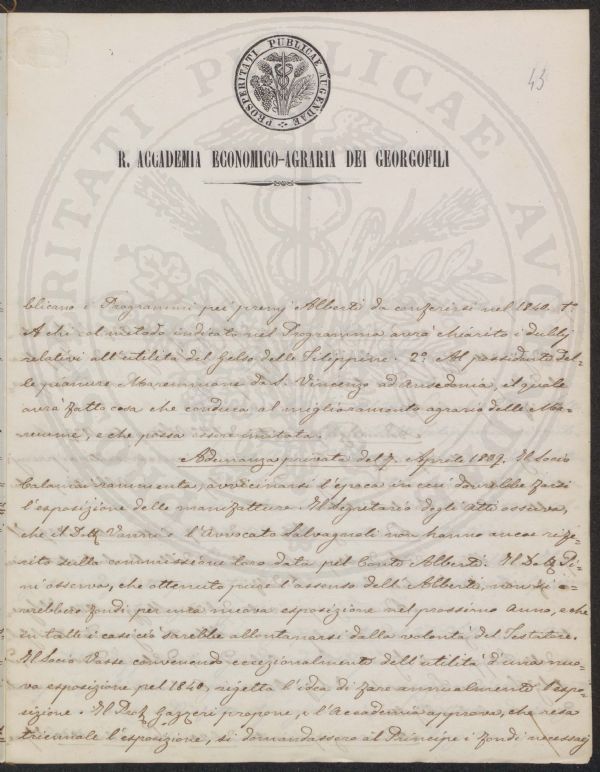 PROSPERITATI PUBLICAE AUGENDAE
43
R. ACCADEMIA ECONOMICO-AGRARIA DEI GEORGOFILI
blicano i Programmi pei premj Alberti da conferirsi nel 1840. 1º
A chi col metodo indicato nel Programma avrà chiarito i dubbj
relativi all'utilità del Gelso delle Filippine. 2º Al possidente del-
le pianure Maremmane da S. Vincenzo ad Ansedonia, il quale
avrà fatto cosa che conduca al miglioramento agrario delle Ma-
remme, e che possa essere imitata.
Adunanza privata del 7. Aprile 1839. Il Socio
rammenta, avvicinarsi l'epoca in cui dovrebbe farsi
l'esposizione delle manifatture. Il Segretario degli atti osserva,
che il Dott. Vanni e l'Avvocato Salvagnoli non hanno ancor rife-
rito sulla commissione loro data pel Conte Alberti. Il Dott. Pi-
ni osserva, che ottenuto pure l'assenso dell'Alberti, non si a-
vrebbero fondi per una nuova esposizione nel prossimo anno, e che
in tutti i casi ciò sarebbe allontanarsi dalla volontà del Testatore.
Il Socio convenendo eccezionalmente dell'utilità d'una nuo-
va esposizione pel 1840, rigetta l'idea di fare annualmente l'espo-
sizione. Il Prof. Gazzeri propone, e l'Accademia approva, che resa
triennale l'esposizione, si domandassero al Principe i fondi necessarj